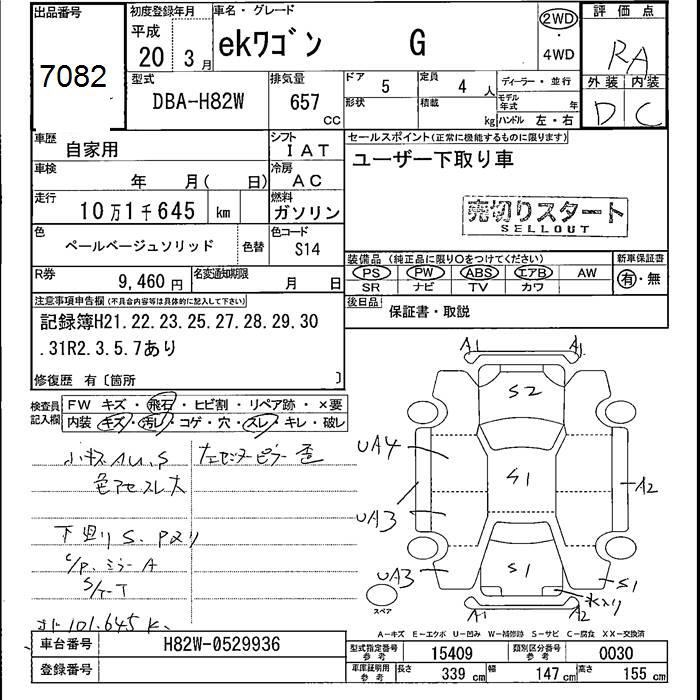 出品番号
7082
初度登録年月
平成
20 3 月
車名・グレード
ekワゴン G
2WD
・
4WD
評価点
RA
外装 内装
D C
型式
DBA-H82W
排気量
657 CC
ドア 5
形状
定員 4 人
積載 kg
ディーラー・並行
モデル年式 年
ハンドル 左・右
車歴 自家用
シフト IAT
車検 年 月( 日)
冷房 AC
走行 10万1千645 km
燃料 ガソリン
色 ペールベージュソリッド 色替
色コード S14
R券 9,460円
名変通知期限 月 日
セールスポイント(正常に機能するものに限ります)
ユーザー下取り車
売切りスタート
SELLOUT
装備品(純正品に限り○をつけてください)
PS PW ABS エアB AW
SR ナビ TV カワ
新車保証書
有・無
後日品 保証書・取説
注意事項申告欄(不具合内容等は具体的に記入して下さい)
記録簿H21.22.23.25.27.28.29.30
.31R2.3.5.7あり
修復歴 有〔箇所 〕
検査員記入欄
FW キズ・飛石・ヒビ割・リペア跡・×要
内装 キズ・汚レ・コゲ・穴・スレ・キレ・破レ
小キズAU.S 左センターピラー歪
色アセスレ大
下廻りS.Pメリ
C/P.ミラーA
S/ケーT
101.645K
A1 A1
S2
UA4
S1
A2
UA3
UA3
S1
S1
A1 A2
スペア
A-キズ E-エクボ U-凹み W-補修跡 S-サビ C-腐食 XX-交換済
車台番号 H82W-0529936
登録番号
型式指定番号 参考 15409
類別区分番号 参考 0030
車庫証明用 参考 長さ 339 cm 幅 147 cm 高さ 155 cm